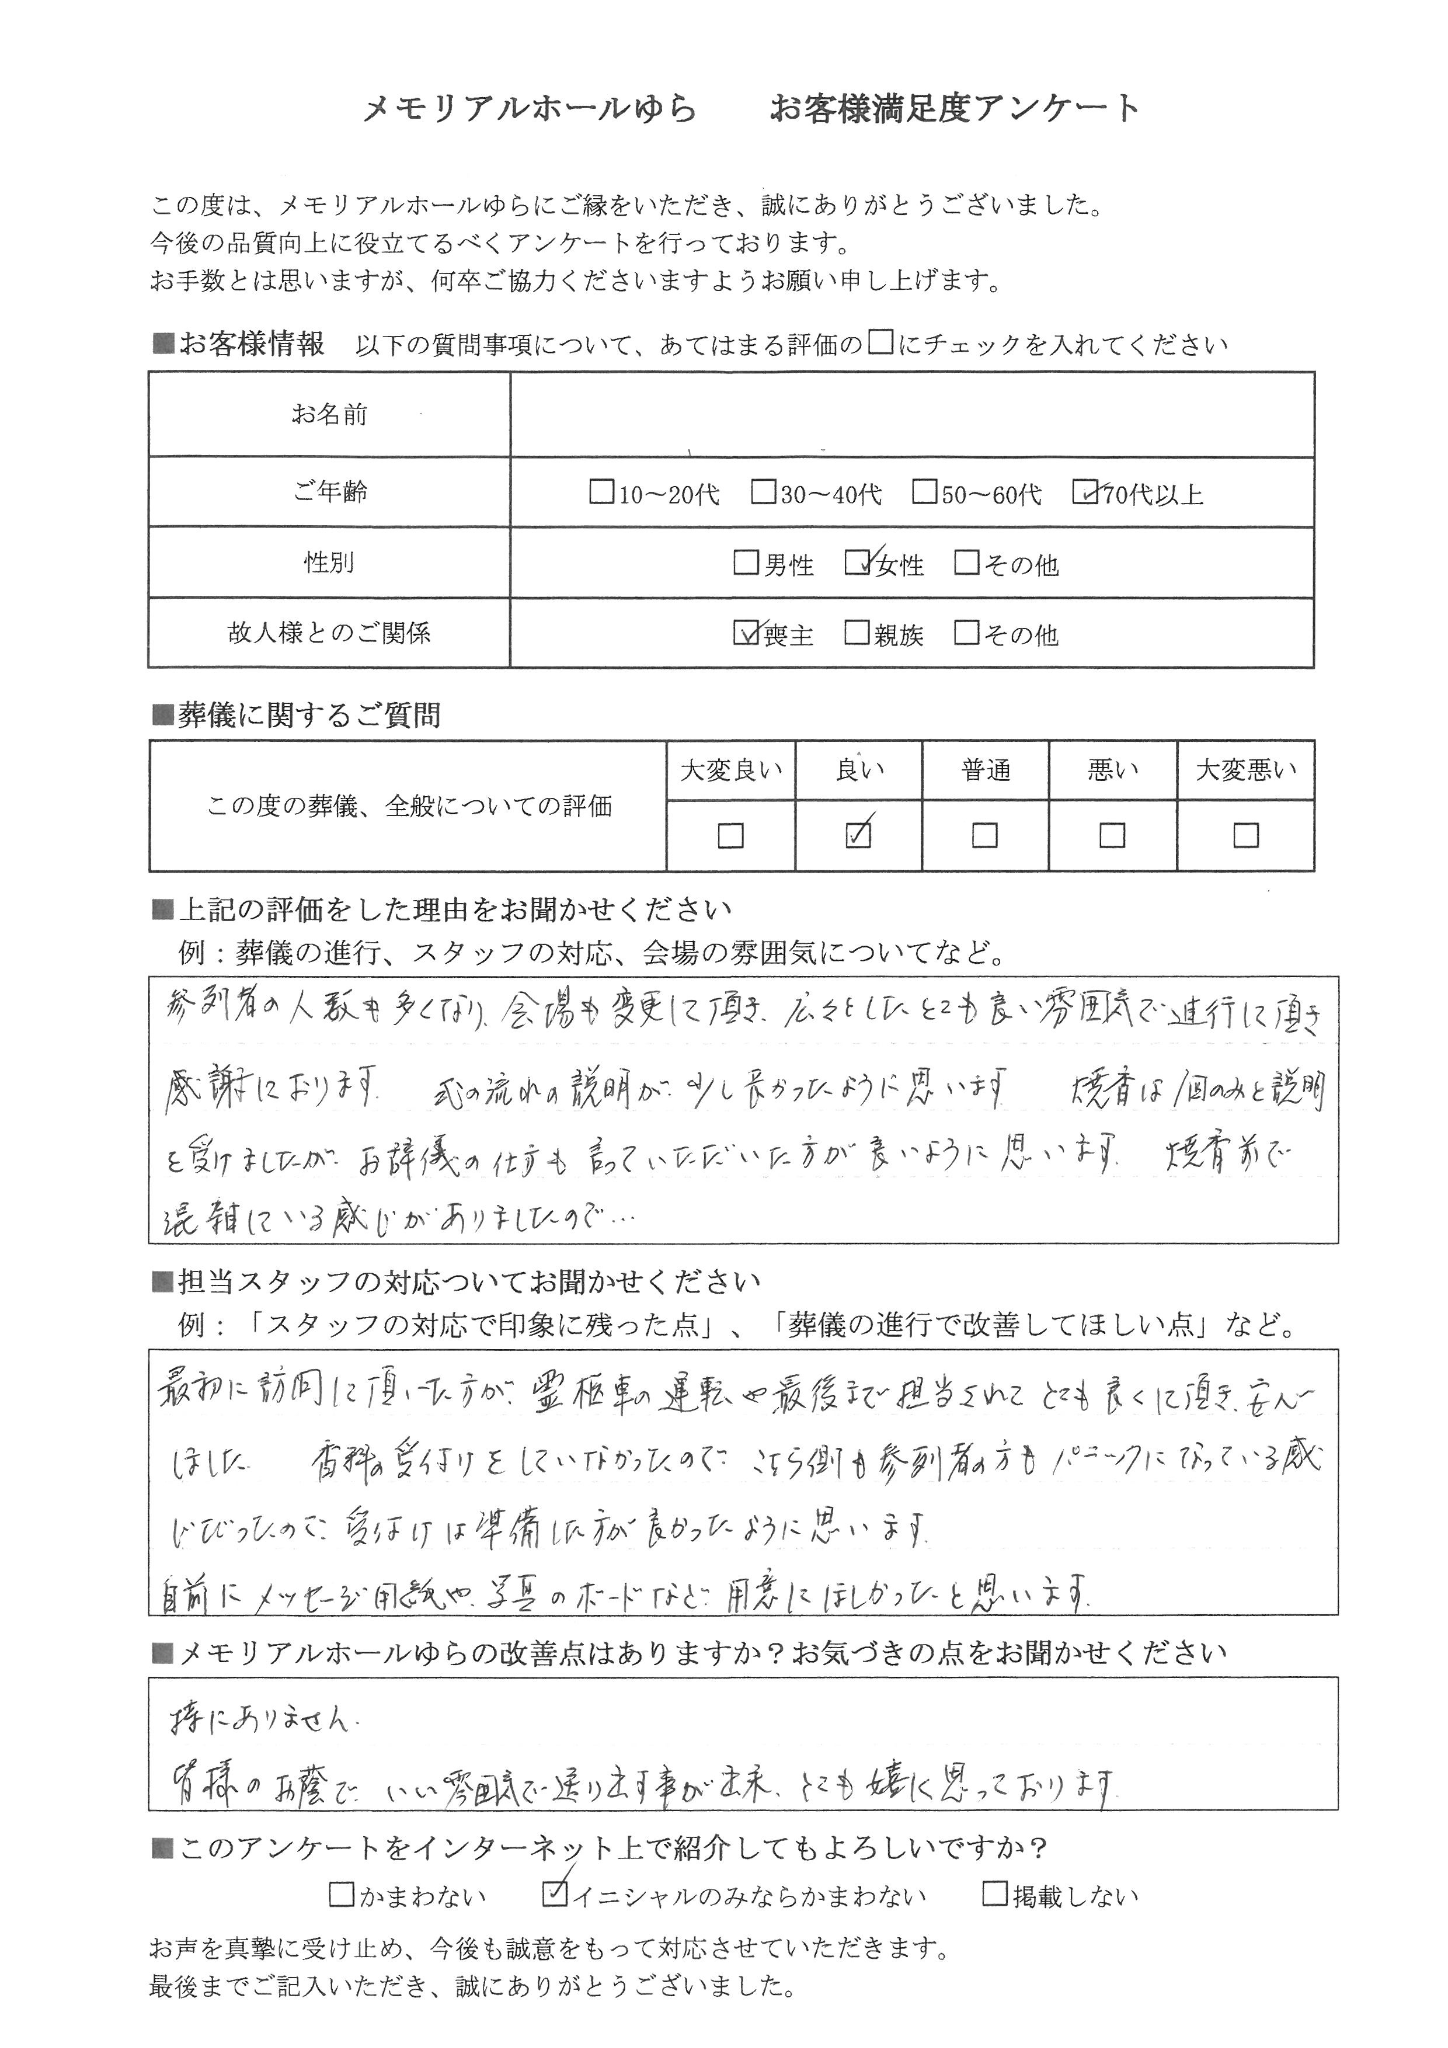 メモリアルホールゆら　　お客様満足度アンケート
この度は、メモリアルホールゆらにご縁をいただき、誠にありがとうございました。
今後の品質向上に役立てるべくアンケートを行っております。
お手数とは思いますが、何卒ご協力くださいますようお願い申し上げます。
■お客様情報　以下の質問事項について、あてはまる評価の□にチェックを入れてください
お名前
ご年齢　□10～20代　□30～40代　□50～60代　☑70代以上
性別　□男性　☑女性　□その他
故人様とのご関係　☑喪主　□親族　□その他
■葬儀に関するご質問
大変良い　良い　普通　悪い　大変悪い
この度の葬儀、全般についての評価　□　☑　□　□　□
■上記の評価をした理由をお聞かせください
例：葬儀の進行、スタッフの対応、会場の雰囲気についてなど。
参列者の人数も多くなり、会場も変更して頂き、広々としたとても良い雰囲気で進行して頂き
感謝しております。　式の流れの説明が、少し長かったように思います　焼香は1回のみと説明
を受けましたが、お辞儀の仕方も言っていただいた方が良いように思います。　焼香前で
混雑している感じがありましたので…
■担当スタッフの対応ついてお聞かせください
例：「スタッフの対応で印象に残った点」、「葬儀の進行で改善してほしい点」など。
最初に訪問して頂いた方が、霊柩車の運転や最後まで担当されてとても良くして頂き、安心
しました　香料の受付けをしていなかったので、こちら側も参列者の方もパニックになっている感
じだったので、受付けは準備した方が良かったように思います。
自前にメッセージ用紙や、写真のボードなど、用意してほしかったと思います。
■メモリアルホールゆらの改善点はありますか？お気づきの点をお聞かせください
特にありません。
皆様のお蔭で、いい雰囲気で送り出す事が出来、とても嬉しく思っております。
■このアンケートをインターネット上で紹介してもよろしいですか？
□かまわない　☑イニシャルのみならかまわない　□掲載しない
お声を真摯に受け止め、今後も誠意をもって対応させていただきます。
最後までご記入いただき、誠にありがとうございました。